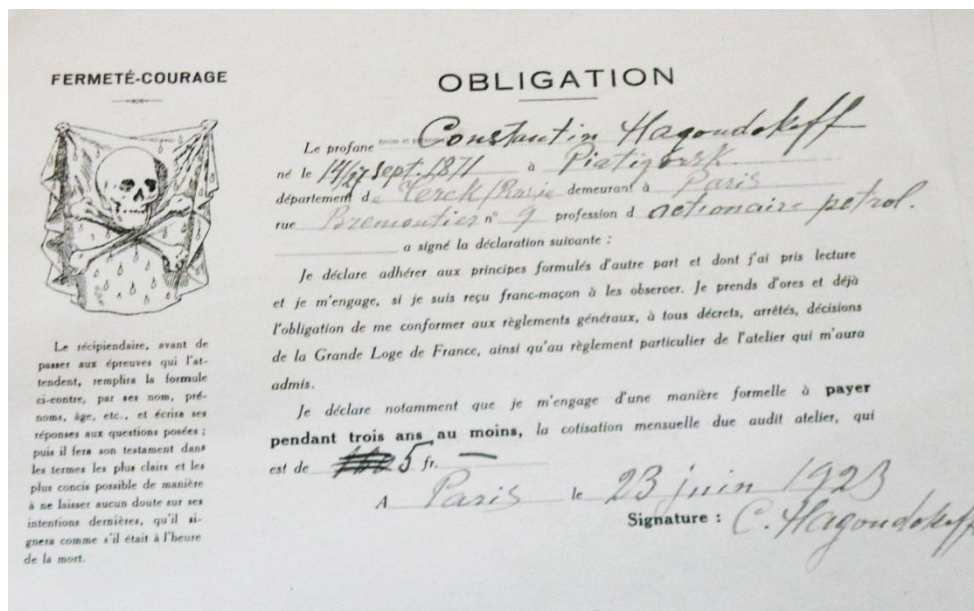 FERMETÉ-COURAGE
Le récipiendaire, avant de
passer aux épreuves qui l'at-
tendent, remplira la formule
ci-contre, par ses nom, pré-
noms, âge, etc., et écrira ses
réponses aux questions posées ;
puis il fera son testament dans
les termes les plus clairs et les
plus concis possible de manière
à ne laisser aucun doute sur ses
intentions dernières, qu'il si-
gnera comme s'il était à l'heure
de la mort.
OBLIGATION
Le profane Constantin Hagoudokoff
né le 14/27 sept. 1871 à Piatigorsk
département de Terck/Russie demeurant à Paris
rue Bremontier n° 9 profession d actionaire petrol.
a signé la déclaration suivante :
Je déclare adhérer aux principes formulés d'autre part et dont j'ai pris lecture
et je m'engage, si je suis reçu franc-maçon à les observer. Je prends d'ores et déjà
l'obligation de me conformer aux règlements généraux, à tous décrets, arrêtés, décisions
de la Grande Loge de France, ainsi qu'au règlement particulier de l'atelier qui m'aura
admis.
Je déclare notamment que je m'engage d'une manière formelle à payer
pendant trois ans au moins, la cotisation mensuelle due audit atelier, qui
est de 5 fr. —
A Paris le 23 juin 1923
Signature : C. Hagoudokoff